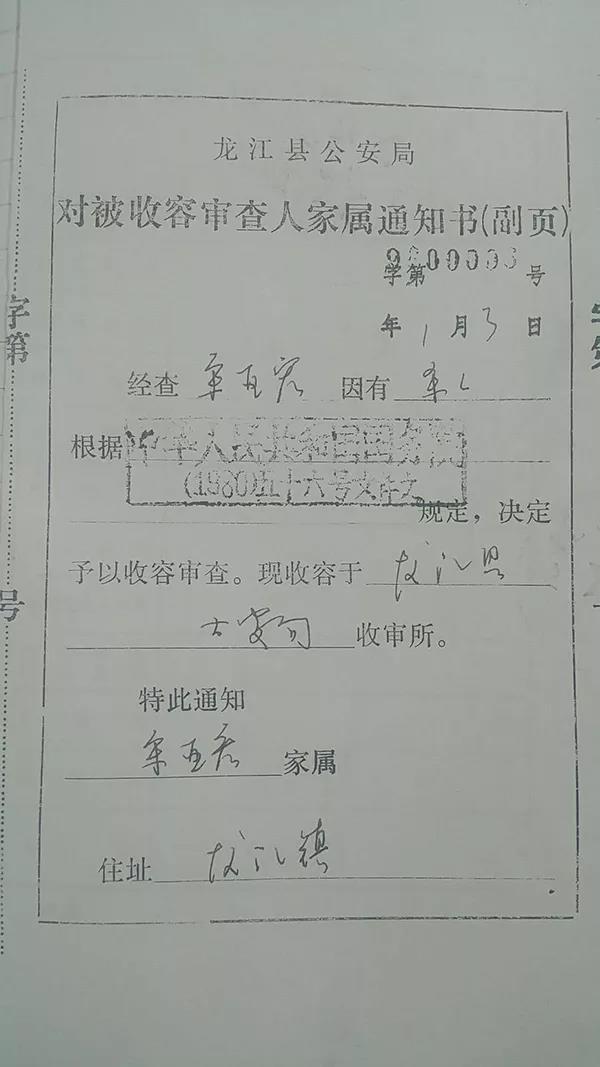 龙江县公安局
对被收容审查人家属通知书(副页)
字第
学第9800003号
年1月3日
经查 因有
根据中华人民共和国国务院
(1980)五十六号文件文
规定，决定
予以收容审查。现收容于龙江县
号
公安局收审所。
特此通知
家属
住址龙江镇